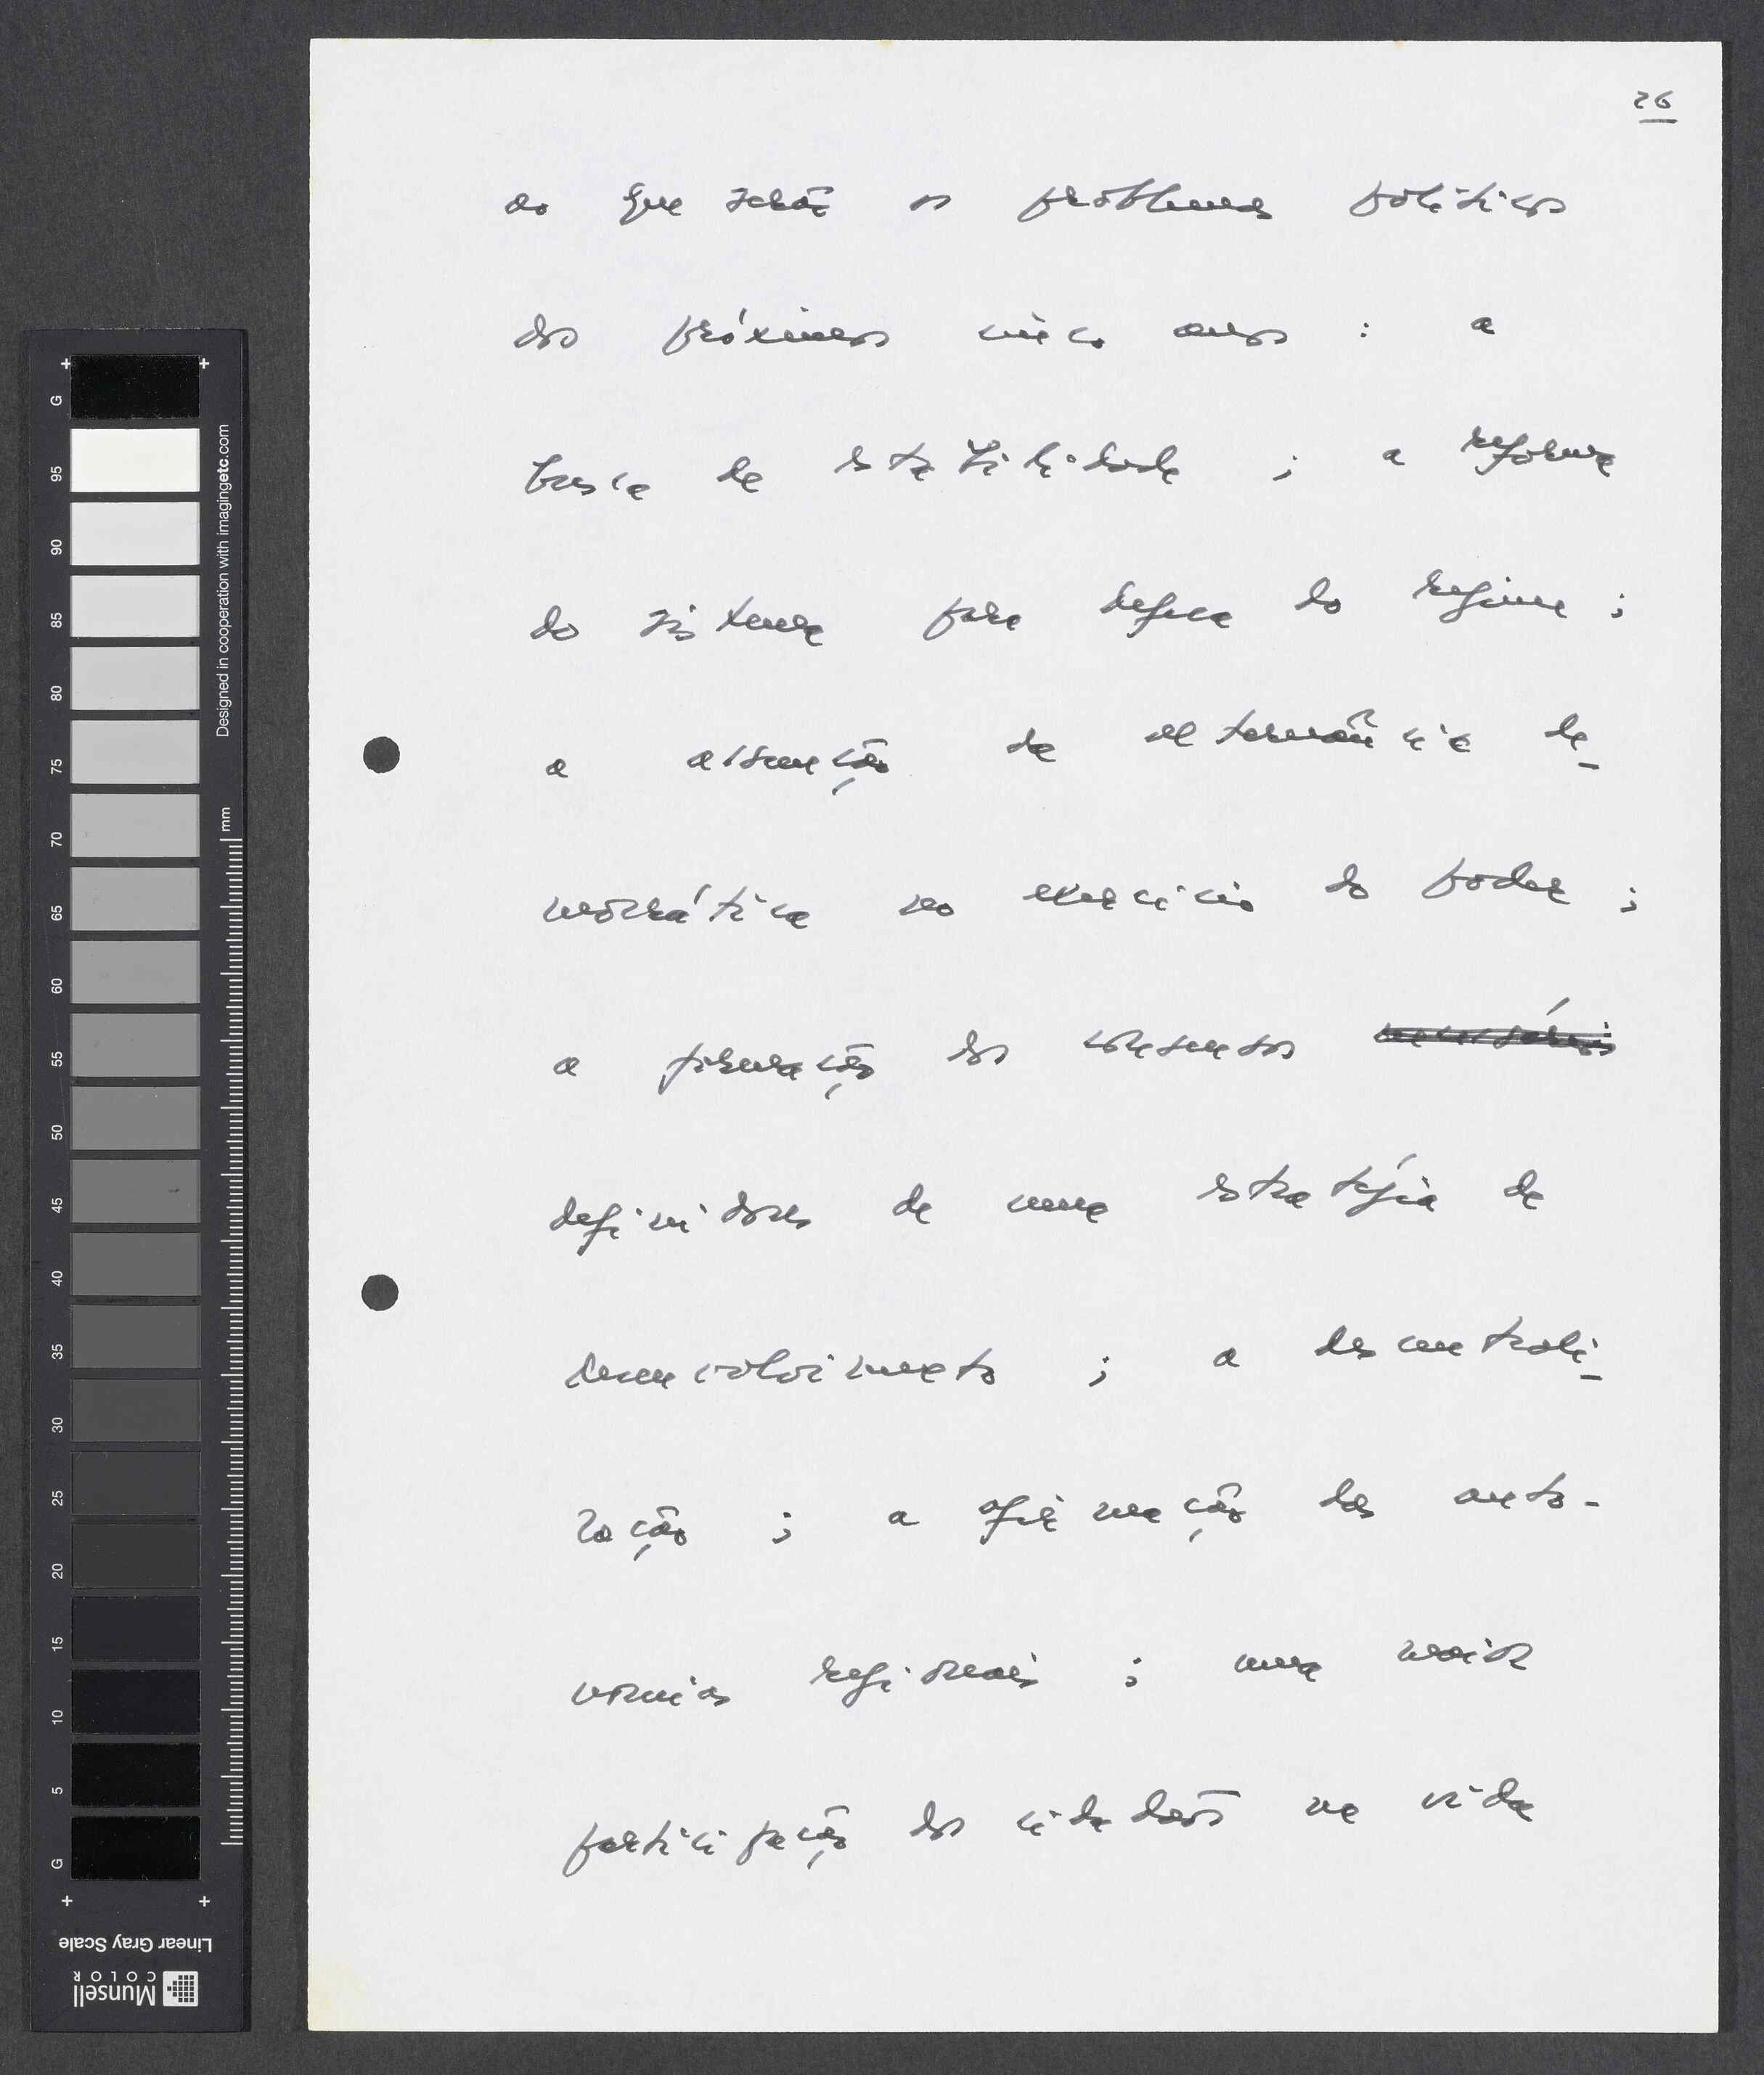 26
ao que serão os problemas políticos
dos próximos cinco anos : a
busca de estabilidade ; a reforma
do sistema para defesa do regime ;
a assunção da alternância de-
mocrática no exercício do poder ;
a formação dos consensos necessários
definidores de uma estratégia de
desenvolvimento ; a descentrali-
zação ; a afirmação das auto-
nomias regionais ; uma maior
participação dos cidadãos na vida
G
95
90
85
80
75
70
65
60
55
50
45
40
35
30
25
20
15
10
5
G
mm
Designed in cooperation with imagingetc.com
Linear Gray Scale
Munsell
COLOR